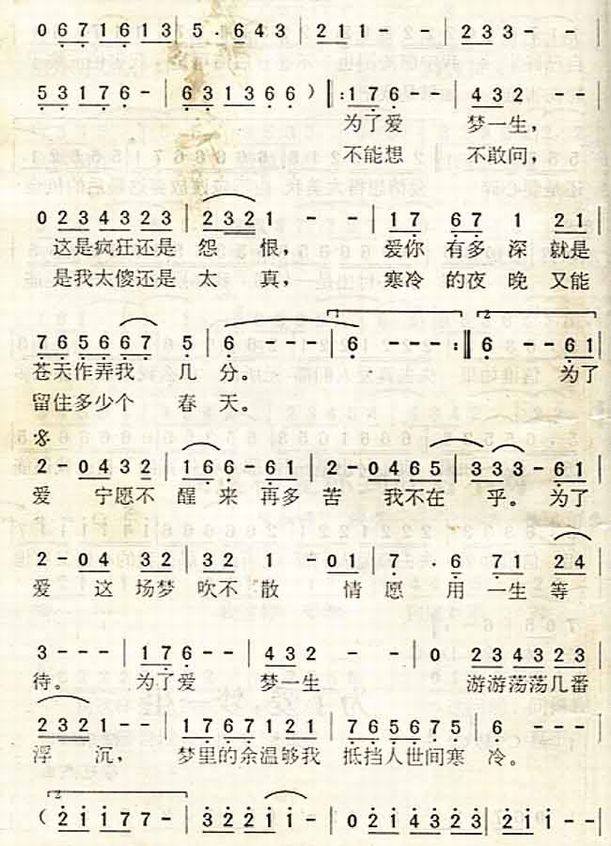 0 6 7 1 6 1 3 | 5 · 6 4 3 | 2 1 1 - - | 2 3 3 - - |
5 3 1 7 6 - | 6 3 1 3 6 6 ) ‖: 1 7 6 - - | 4 3 2 - - |
为了爱 梦一生,
不能想 不敢问,
0 2 3 4 3 2 3 | 2 3 2 1 - - | 1 7 6 7 1 2 1 |
这是疯狂还是 怨 恨, 爱你 有多 深 就是
是我太傻还是 太 真, 寒冷 的夜 晚 又能
1 2
7 6 5 6 6 7 5 | 6 - - - | 6 - - - :‖ 6 - - 6 1 |
苍天作弄我 几 分。 为了
留住多少个 春 天。
2 - 0 4 3 2 | 1 6 6 - 6 1 | 2 - 0 4 6 5 | 3 3 3 - 6 1 |
爱 宁愿不 醒 来 再多 苦 我不在 乎。 为了
2 - 0 4 3 2 | 3 2 1 - 0 1 | 7 · 6 7 1 2 4 |
爱 这 场梦 吹不 散 情 愿 用 一生 等
3 - - - | 1 7 6 - - | 4 3 2 - - | 0 2 3 4 3 2 3 |
待。 为了爱 梦一生 游游荡荡几番
2 3 2 1 - - | 1 7 6 7 1 2 1 | 7 6 5 6 7 5 | 6 - - - |
浮 沉, 梦里的余温够我 抵挡人世间寒 冷。
2
( 2 1 1 7 7 - | 3 2 2 1 1 - | 0 2 1 4 3 2 3 | 2 1 1 - - |